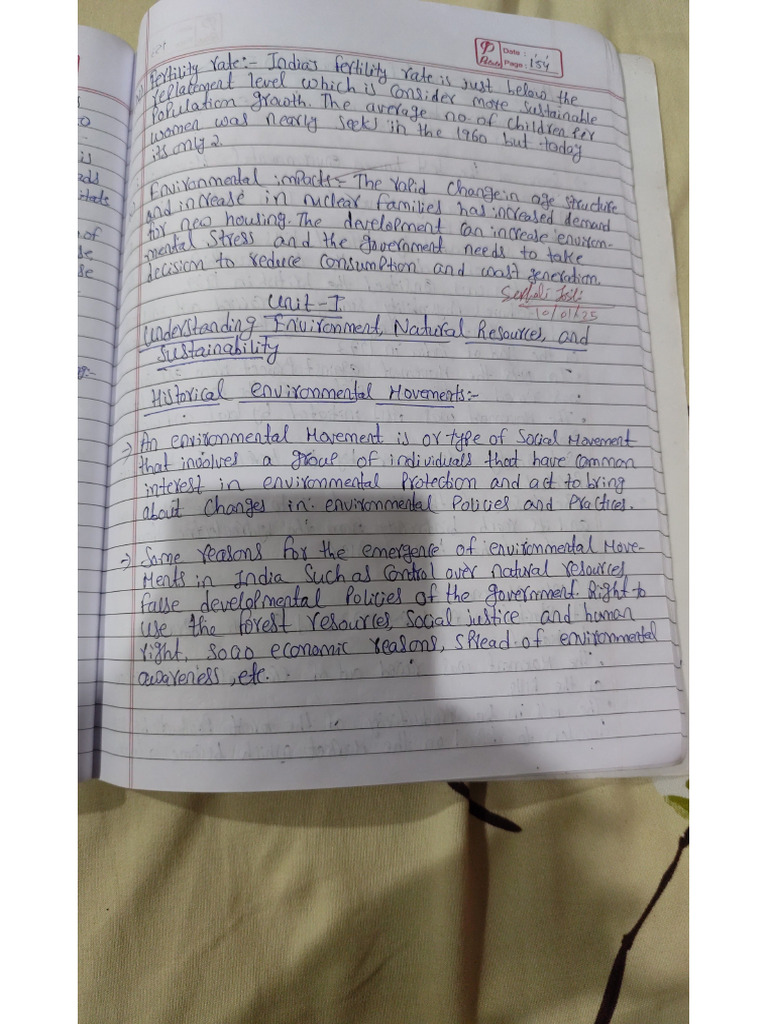 Date :
Page : 154
Fertility rate:- India's fertility rate is just below the
replacement level which is consider more sustainable
Population growth. The average no. of children Per
women was nearly seeks in the 1960 but today
its only 2.
Environmental impacts:- The rapid change in age structure
and increase in nuclear families has increased demand
for new housing. The development can increase environ-
mental stress and the government needs to take
decision to reduce consumption and wast generation.
10/01/25
Unit-I
Understanding Environment, Natural Resources, and
Sustainability
Historical environmental Movements:-
→ An environmental Movement is or type of Social Movement
that involves a group of individuals that have common
interest in environmental Protection and act to bring
about changes in environmental Policies and Practices.
→ Some reasons for the emergence of environmental Move-
Ments in India Such as Control over natural resources,
false developmental Policies of the government. Right to
use the forest resources, Social justice and human
right, socio economic reasons, spread of environmental
awareness, etc.